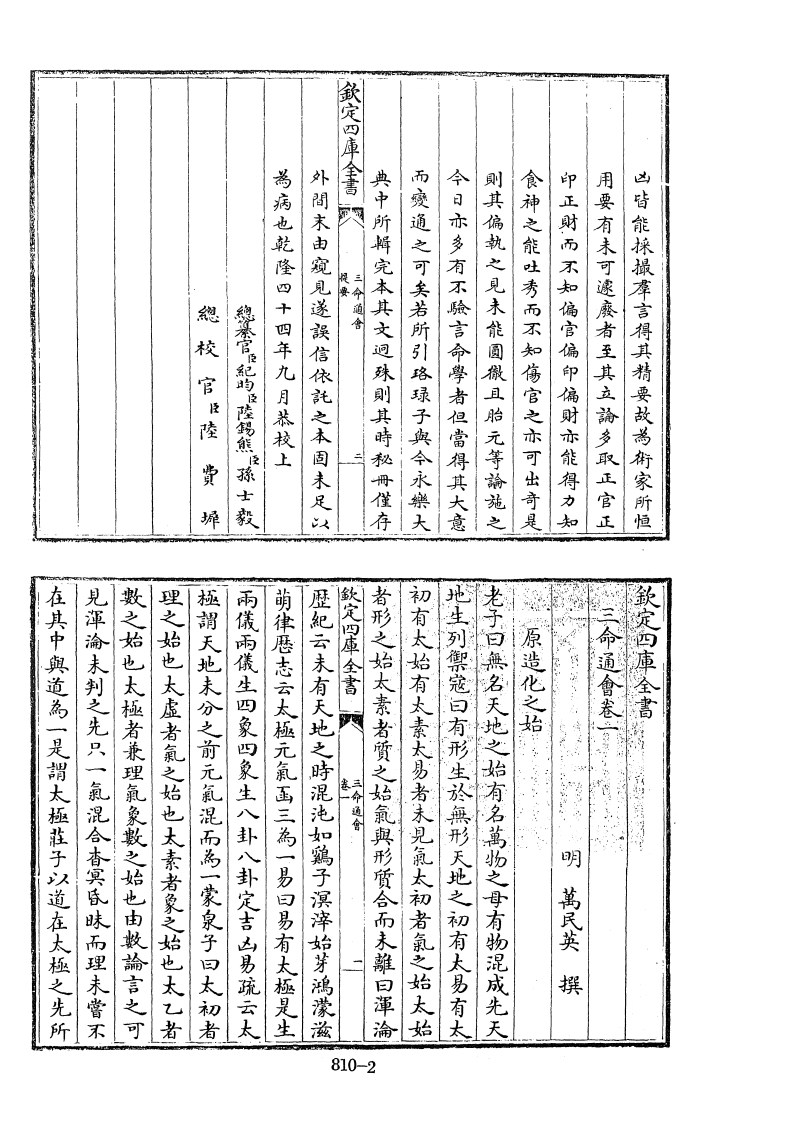 凶皆能採撮羣言得其精要故為術家所恒
用要有未可遽廢者至其立論多取正官正
印正財而不知偏官偏印偏財亦能得力知
食神之能吐秀而不知傷官之亦可出奇是
則其偏執之見未能圓徹且胎元等論施之
今日亦多有不驗言命學者但當得其大意
而變通之可矣若所引珞琭子與今永樂大
典中所輯完本其文迥殊則其時秘冊僅存
欽定四庫全書
三命通會
提要
二
外間末由窺見遂誤信依託之本固未足以
為病也乾隆四十四年九月恭校上
總纂官臣紀昀臣陸錫熊臣孫士毅
總校官臣陸費墀
欽定四庫全書
三命通會卷一
明 萬民英 撰
原造化之始
老子曰無名天地之始有名萬物之母有物混成先天
地生列禦寇曰有形生於無形天地之初有太易有太
初有太始有太素太易者未見氣太初者氣之始太始
者形之始太素者質之始氣與形質合而未離曰渾淪
欽定四庫全書
三命通會
卷一
一
歴紀云未有天地之時混沌如鷄子溟涬始芽鴻濛滋
萌律厯志云太極元氣函三為一易曰易有太極是生
兩儀兩儀生四象四象生八卦八卦定吉凶易疏云太
極謂天地未分之前元氣混而為一蒙泉子曰太初者
理之始也太虛者氣之始也太素者象之始也太乙者
數之始也太極者兼理氣象數之始也由數論言之可
見渾淪未判之先只一氣混合杳冥昏昧而理未嘗不
在其中與道為一是謂太極莊子以道在太極之先所
810-2